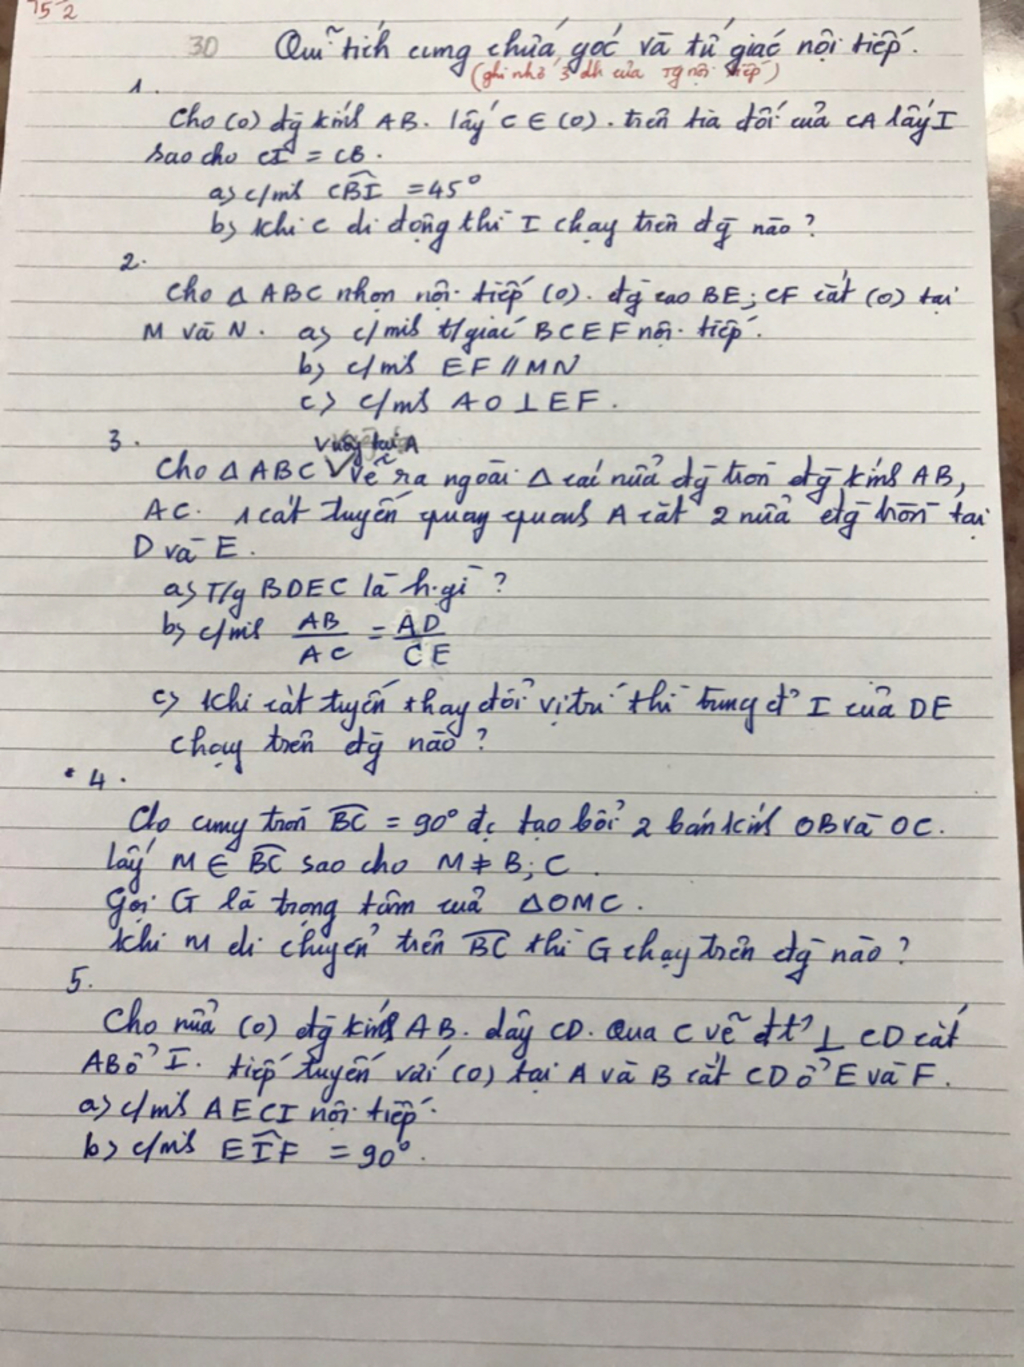 75-2
30 Quĩ tích cung chứa góc và tứ giác nội tiếp.
(ghi nhớ 3 dh của Tg nội tiếp)
1.
Cho (O) đg kính AB. lấy C ∈ (O). trên tia đối của CA lấy I
sao cho CI = CB.
a) c/m's CBI = 45°
b) khi C di động thì I chạy trên đg nào?
2.
Cho Δ ABC nhọn nội tiếp (O). đg cao BE; CF cắt (O) tại
M và N. a) c/m's t/giác BCEF nội tiếp.
b) c/m's EF // MN
c) c/m's AO ⊥ EF.
3.
Vuông tại A
Cho Δ ABC Vẽ ra ngoài Δ các nửa đg tròn đg kính AB,
AC. 1 cát tuyến quay quanh A cắt 2 nửa đg tròn tại
D và E.
a) T/g BDEC là h.gì?
b) c/m's AB/AC = AD/CE
c) khi cát tuyến thay đổi vị trí thì trung đ' I của DE
chạy trên đg nào?
4.
Cho cung tròn BC = 90° đc tạo bởi 2 bán kính OB và OC.
lấy M ∈ BC sao cho M ≠ B; C.
Gọi G là trọng tâm cuả ΔOMC.
khi M di chuyển trên BC thì G chạy trên đg nào?
5.
Cho nửa (O) đg kính AB. dây CD. Qua C vẽ đt' ⊥ CD cắt
AB ở I. tiếp tuyến với (O) tại A và B cắt CD ở E và F.
a) c/m's AECI nội tiếp.
b) c/m's EIF = 90°.